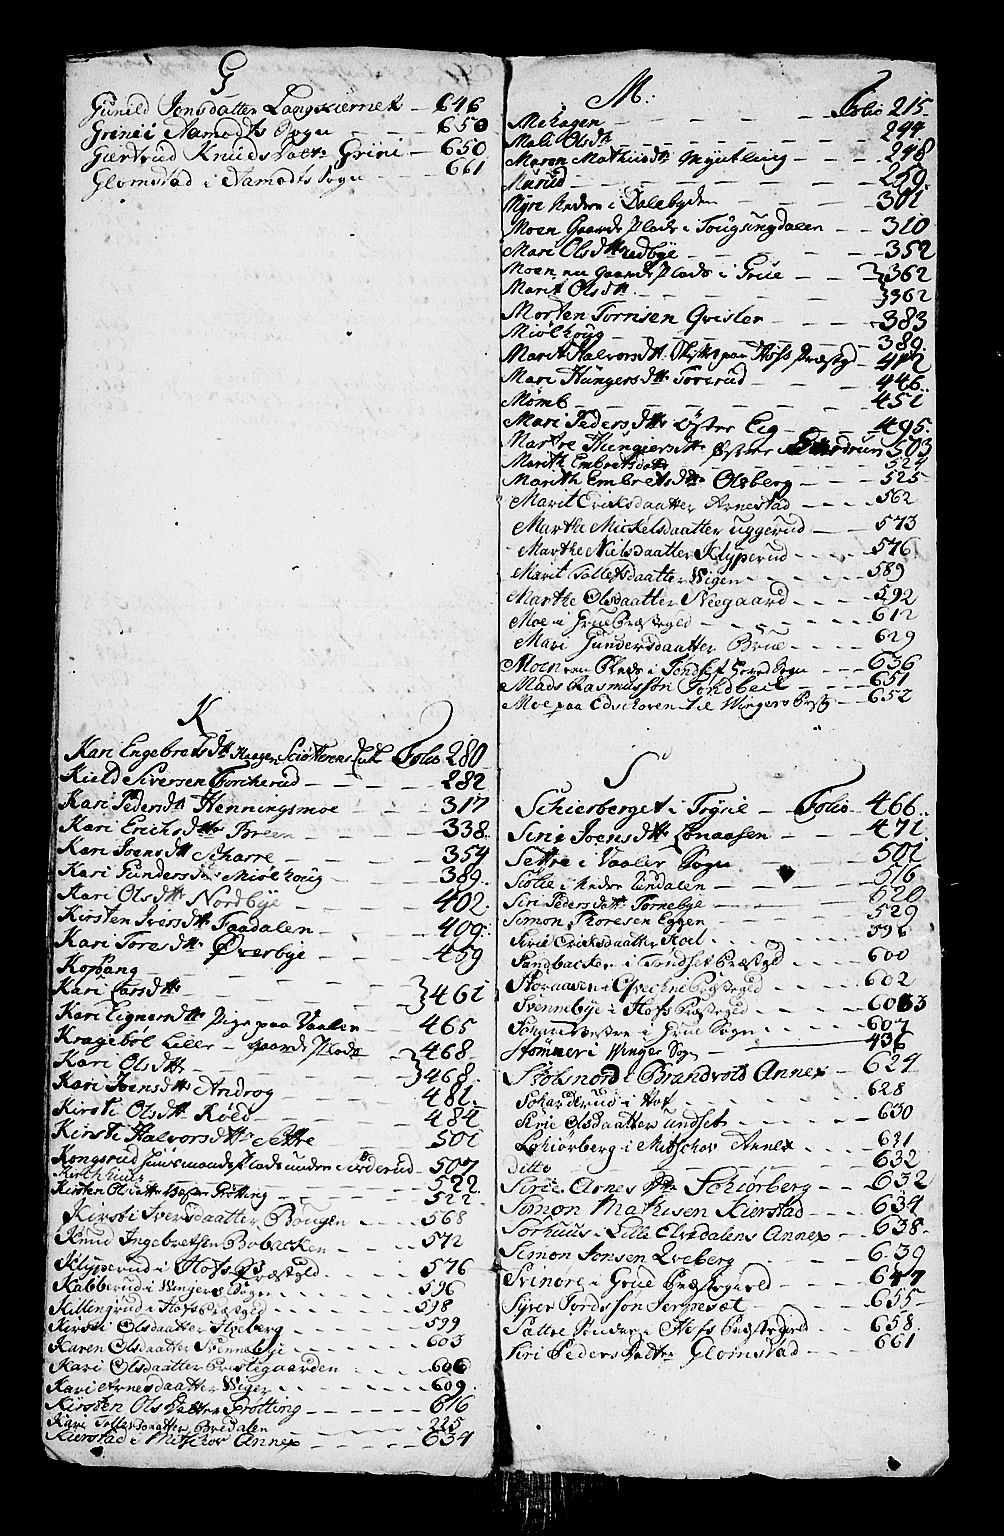 G
Gunild Jonsdatter Langkiernet — 646
Grinie i Aamodts Sogn — 650
Giertrud Knuds Datr Grini — 650
Glomstad i Aamodts Sogn — 661
K
Kari Engebretsdtr Haagen Folio 280
Kield Siversen Torcherud — 282
Kari Pedersdtr Henningsmoe — 317
Kari Erichsdtr Breen — 338
Kari Joensdtr Scharre — 354
Kari Gundersdtr Miølhoug — 389
Kari Olsdtr Nordbye — 402
Kirsten Iversdtr Taadalen — 409
Kari Toresdtr Øverbye — 459
Kopbang
Kari Larsdtr — 461
Kari Eignersdtr Pige paa Vaalen — 465
Kragebøl Lille — gaards Plads — 468
Kari Olsdtr — 468
Kari Joensdtr Androg — 481
Kirsti Olsdtr Kild — 484
Kirsti Halvorsdtr Settre — 501
Kongsrud Huusmands Plads under — 507
— 522
Kirsten Olsdatter Trøtting — 522
Kirsti Iversdaatter Bougen — 568
Knud Ingebretsen Bobacken — 572
Klyperud i Hofs Præstegield — 576
Kabberud i Wingers Sogn — 596
Killingrud i Hofs Præstegield — 598
Kirsti Olsdaatter Huseberg — 599
Karen Olsdaatter Svennebye — 603
Kari Olsdaatter Prestegaarden — 606
Kari Arnesdaatter Wiger — 609
Kirsten Ols Datter Trøtting — 616
Kari Tollefsdaatter Bredalen — 225
Kierstad i Mitschov Annex — 634
M:
Mehagen — Folio 215
Mali Olsdtr — 244
Maren Mathisdtr Myntling — 248
Murud — 259
Myre Neder i Dalebyden — 301
Moen Gaards Plads i Tougsingdalen — 310
Mari Olsdtr Wedbye — 352
Moen en gaards Plads i Grue — 362
Marit Olsdtr — 362
Morten Tornisen Qvisler — 383
Miølhoug — 389
Marit Halvorsdtr paa Hofs Præstgd — 412
Mari Hungersdtr Torerud — 446
Mømb — 451
Mari Pedersdtr Øster Eig — 495
Martre Hungiersdtr Østre — 503
Marith Embretsdatr — 524
Marith Embretsdtr Olsberg — 525
Marit Ericksdaatter Arnestad — 562
Marthe Mickelsdaatter Uggerud — 573
Marthe Nielsdaatter Klyperud — 576
Marit Tollefsdaatter Wigen — 589
Marthe Olsdaatter Neegaard — 592
Moe i Grue Præstegeld — 612
Mari Gundersdaatter Brue — 629
Moen een Plads i Tøndset Hoved Sogn — 636
Mads Rasmussøn Tøndbeck — 651
Moe paa Edschoven til Wingers Præstg — 652
S
Schierberget i Trysie — Folio 466
Siri Joensdtr Lonaasen — 471
Settre i Vaaler Sogn — 501
Siølie i Neder Rendalen — 516
Siri Pedersdatter Tornebye — 520
Simon Thoresen Eggen — 529
Sirie Ericksdaatter Roel — 596
Sandbacken i Tøndset Præstegd — 600
Storaasen i Qvechni Præstegield — 602
Svennebye i Hofs Præstegield — 603
Sohans Vestre i Grue Sogn — 607
Stømner i Winger Sogn — 436
Stolsnord i Brandvold Annex — 624
Sohanderud i Hof — 628
Sirie Olsdaatter Lundset — 630
Schiørberg i Mitschov Annex — 631
ditto — 632
Sirie Arnes Dtr Schiørberg — 632
Simon Mathisen Kierstad — 634
Sorhuus i Lille Elvedalens Annex — 638
Simon Jonsen Qveberg — 639
Svinøre i Grue Præstegield — 647
Syver Tordssøn Jernset — 655
Sattre Sønder i Hofs Præstegield — 658
Siri Peders Datter Glomstad — 661